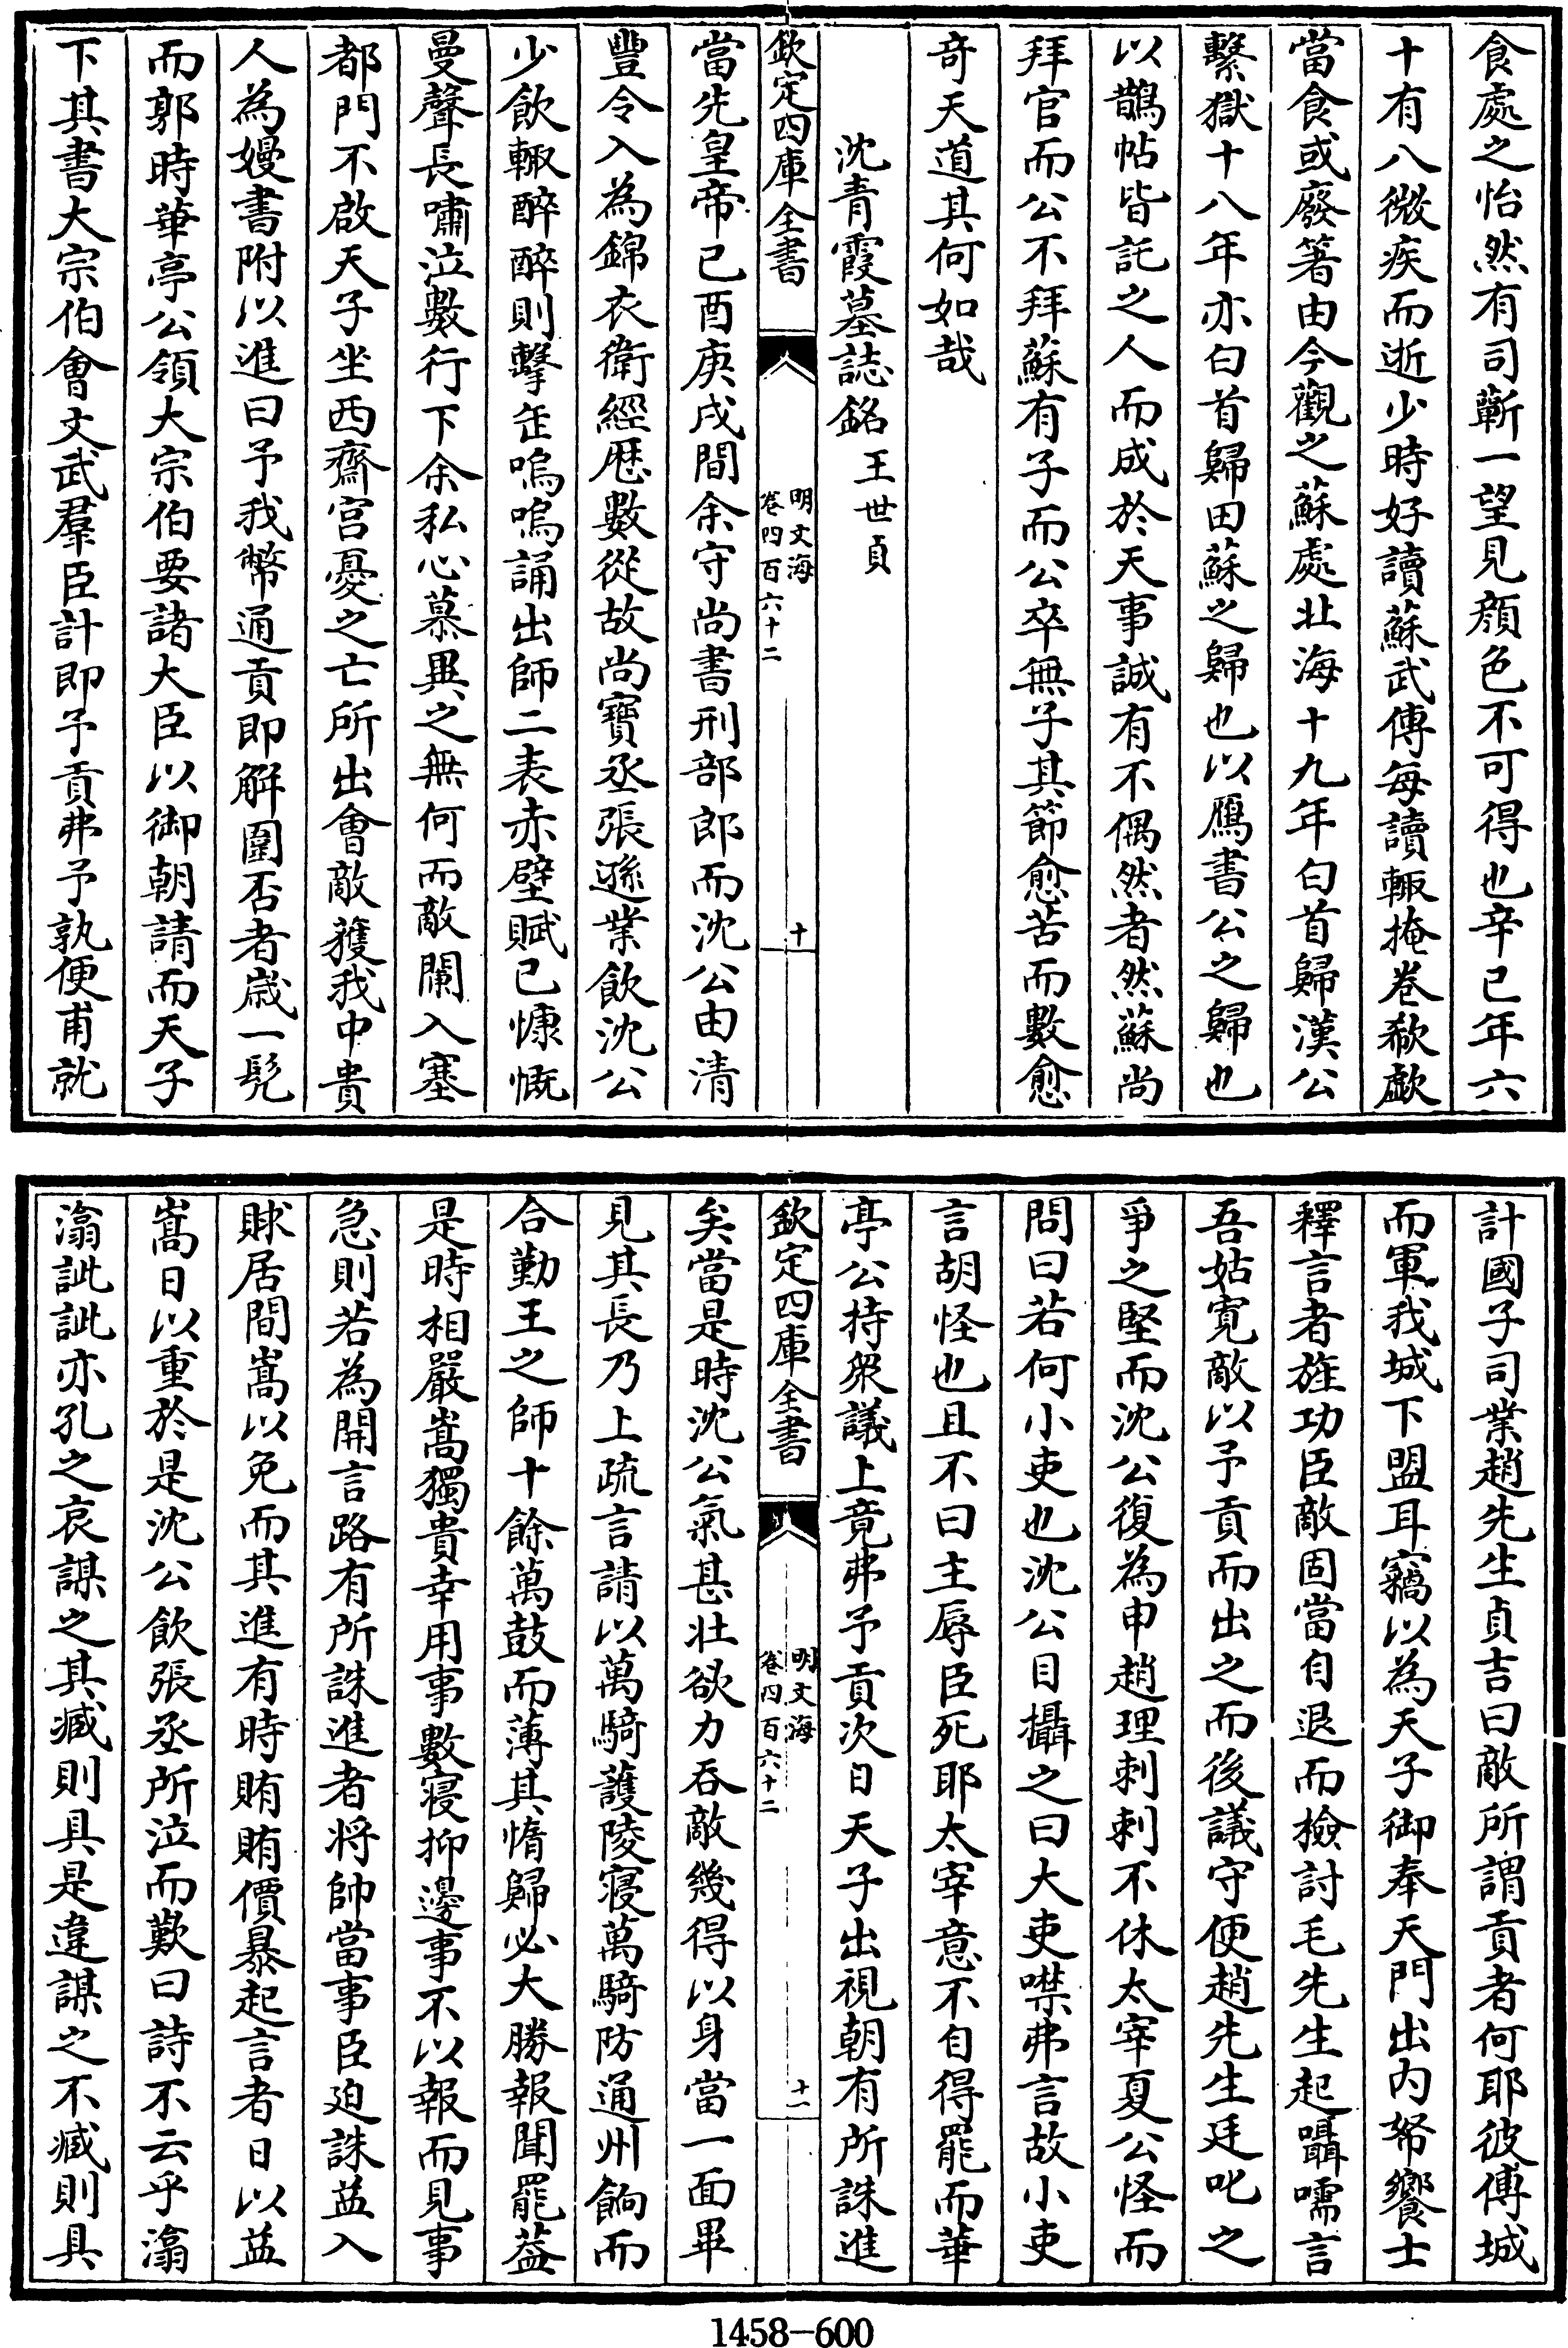 食處之怡然有司蘄一望見顔色不可得也辛巳年六
十有八微疾而逝少時好讀蘇武傳每讀輙掩卷欷歔
當食或廢箸由今觀之蘇處北海十九年白首歸漢公
繫獄十八年亦白首歸田蘇之歸也以鴈書公之歸也
以鵲帖皆託之人而成於天事誠有不偶然者然蘇尚
拜官而公不拜蘇有子而公卒無子其節愈苦而數愈
奇天道其何如哉
沈青霞墓誌銘王世貞
欽定四庫全書
明文海
卷四百六十二
十
當先皇帝已酉庚戌間余守尚書刑部郎而沈公由清
豐令入為錦衣衛經歴數從故尚寶丞張遜業飲沈公
少飲輙醉醉則擊缶嗚嗚誦出師二表赤壁賦已慷慨
曼聲長嘯泣數行下余私心慕異之無何而敵闌入塞
都門不啟天子坐西齋宫憂之亡所出會敵獲我中貴
人為嫚書附以進曰予我幣通貢即解圍否者歳一髠
而郭時華亭公領大宗伯要諸大臣以御朝請而天子
下其書大宗伯會文武羣臣計即予貢弗予孰便甫就
計國子司業趙先生貞吉曰敵所謂貢者何耶彼傅城
而軍我城下盟耳竊以為天子御奉天門出内帑饗士
釋言者旌功臣敵固當自退而檢討毛先生起囁嚅言
吾姑寛敵以予貢而出之而後議守便趙先生廷叱之
爭之堅而沈公復為申趙理刺刺不休太宰夏公怪而
問曰若何小吏也沈公目攝之曰大吏噤弗言故小吏
言胡怪也且不曰主辱臣死耶太宰意不自得罷而華
亭公持衆議上竟弗予貢次日天子出視朝有所誅進
欽定四庫全書
明文海
卷四百六十二
十一
矣當是時沈公氣甚壯欲力吞敵幾得以身當一面畢
見其長乃上疏言請以萬騎護陵寢萬騎防通州餉而
合勤王之師十餘萬鼓而薄其惰歸必大勝報聞罷葢
是時相嚴嵩獨貴幸用事數寢抑邊事不以報而見事
急則若為開言路有所誅進者将帥當事臣廹誅益入
賕居間嵩以免而其進有時賄賄價暴起言者日以益
嵩日以重於是沈公飲張丞所泣而歎曰詩不云乎潝
潝訿訿亦孔之哀謀之其臧則具是違謀之不臧則具
1458—600